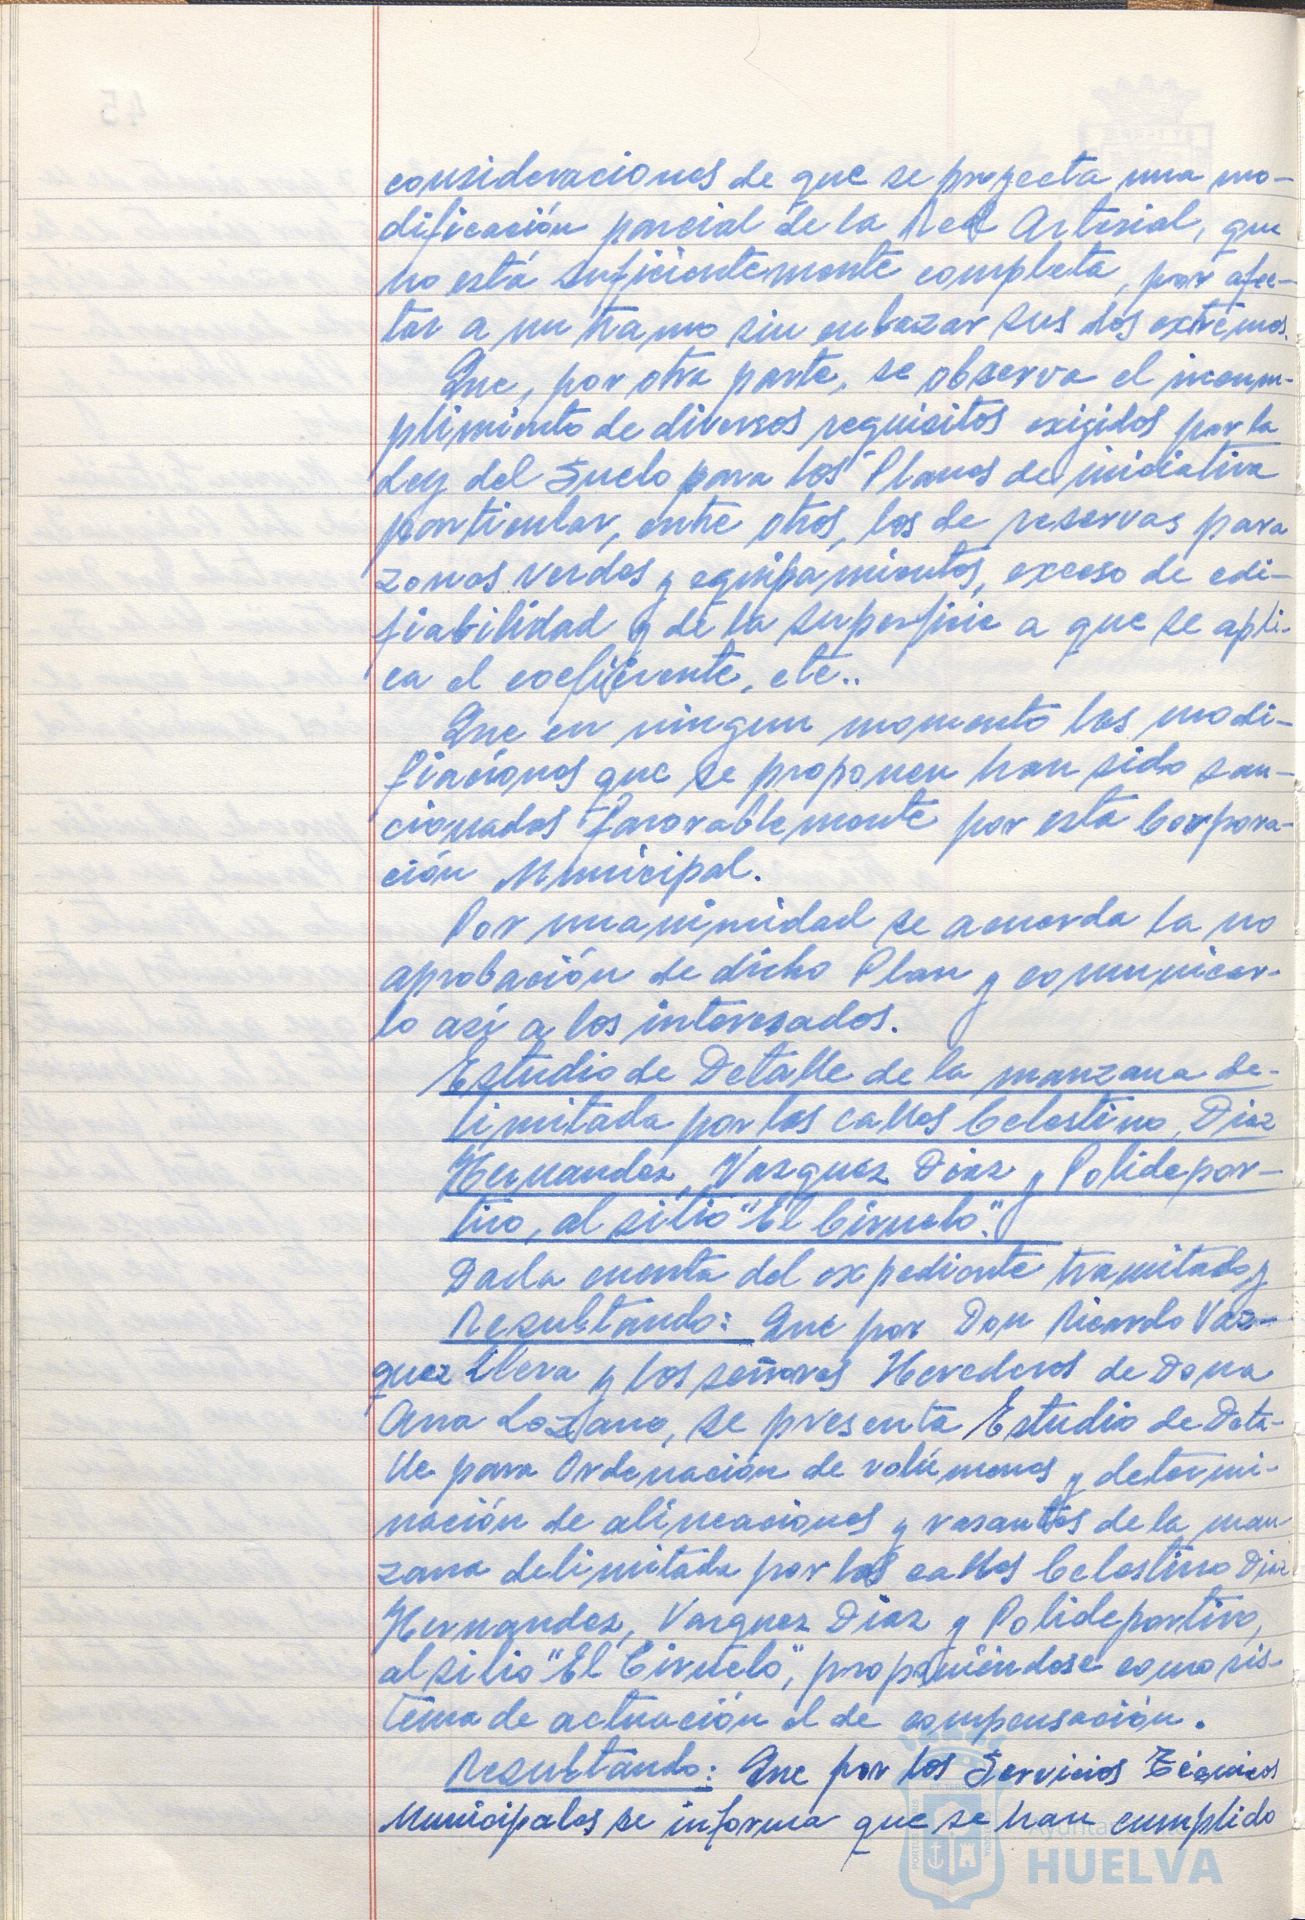 consideraciones de que se proyecta una mo-
dificación parcial de la Red Arterial, que
no está suficientemente completa, por afec-
tar a un tramo sin enlazar sus dos extremos.
Que, por otra parte, se observa el incum-
plimiento de diversos requisitos exigidos por la
Ley del Suelo para los Planes de iniciativa
particular, entre otros, los de reservas para
zonas verdes y equipamientos, exceso de edi-
fiabilidad y de la superficie a que se apli-
ca el coeficiente, etc..
Que en ningun momento las modi-
fiaciones que se proponen han sido san-
cionadas favorablemente por esta Corpora-
ción Municipal.
Por unanimidad se acuerda la no
aprobación de dicho Plan y comunicar-
lo asi a los interesados.
Estudio de Detalle de la manzana de-
limitada por las calles Celestino, Diaz
Hernandez, Vazquez Diaz y Polidepor-
tivo, al sitio "El Ciruelo".
Dada cuenta del expediente tramitado y
Resultando: Que por Don Ricardo Vaz-
quez Llera y los señores Herederos de Dona
Ana Lozano, se presenta Estudio de Deta-
lle para Ordenación de volúmenes y determi-
nación de alineaciones y rasantes de la man
zana delimitada por las calles Celestino Diaz
Hernandez, Vazquez Diaz y Polideportivo,
al sitio "El Ciruelo", proponiéndose como sis-
tema de actuación el de compensación.
Resultando: Que por los Servicios Técnicos
Municipales se informa que se han cumplido
Ayuntamiento
HUELVA
45